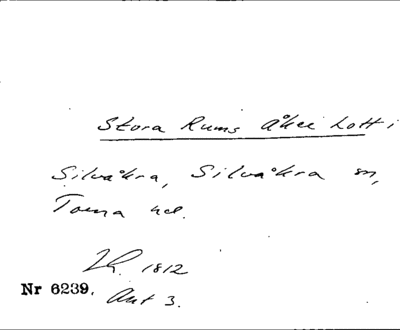 Stora Rums Åker Lott i
Silvåkra, Silvåkra sn,
Torna hd.
1812
Nr 6239. Akt 3.